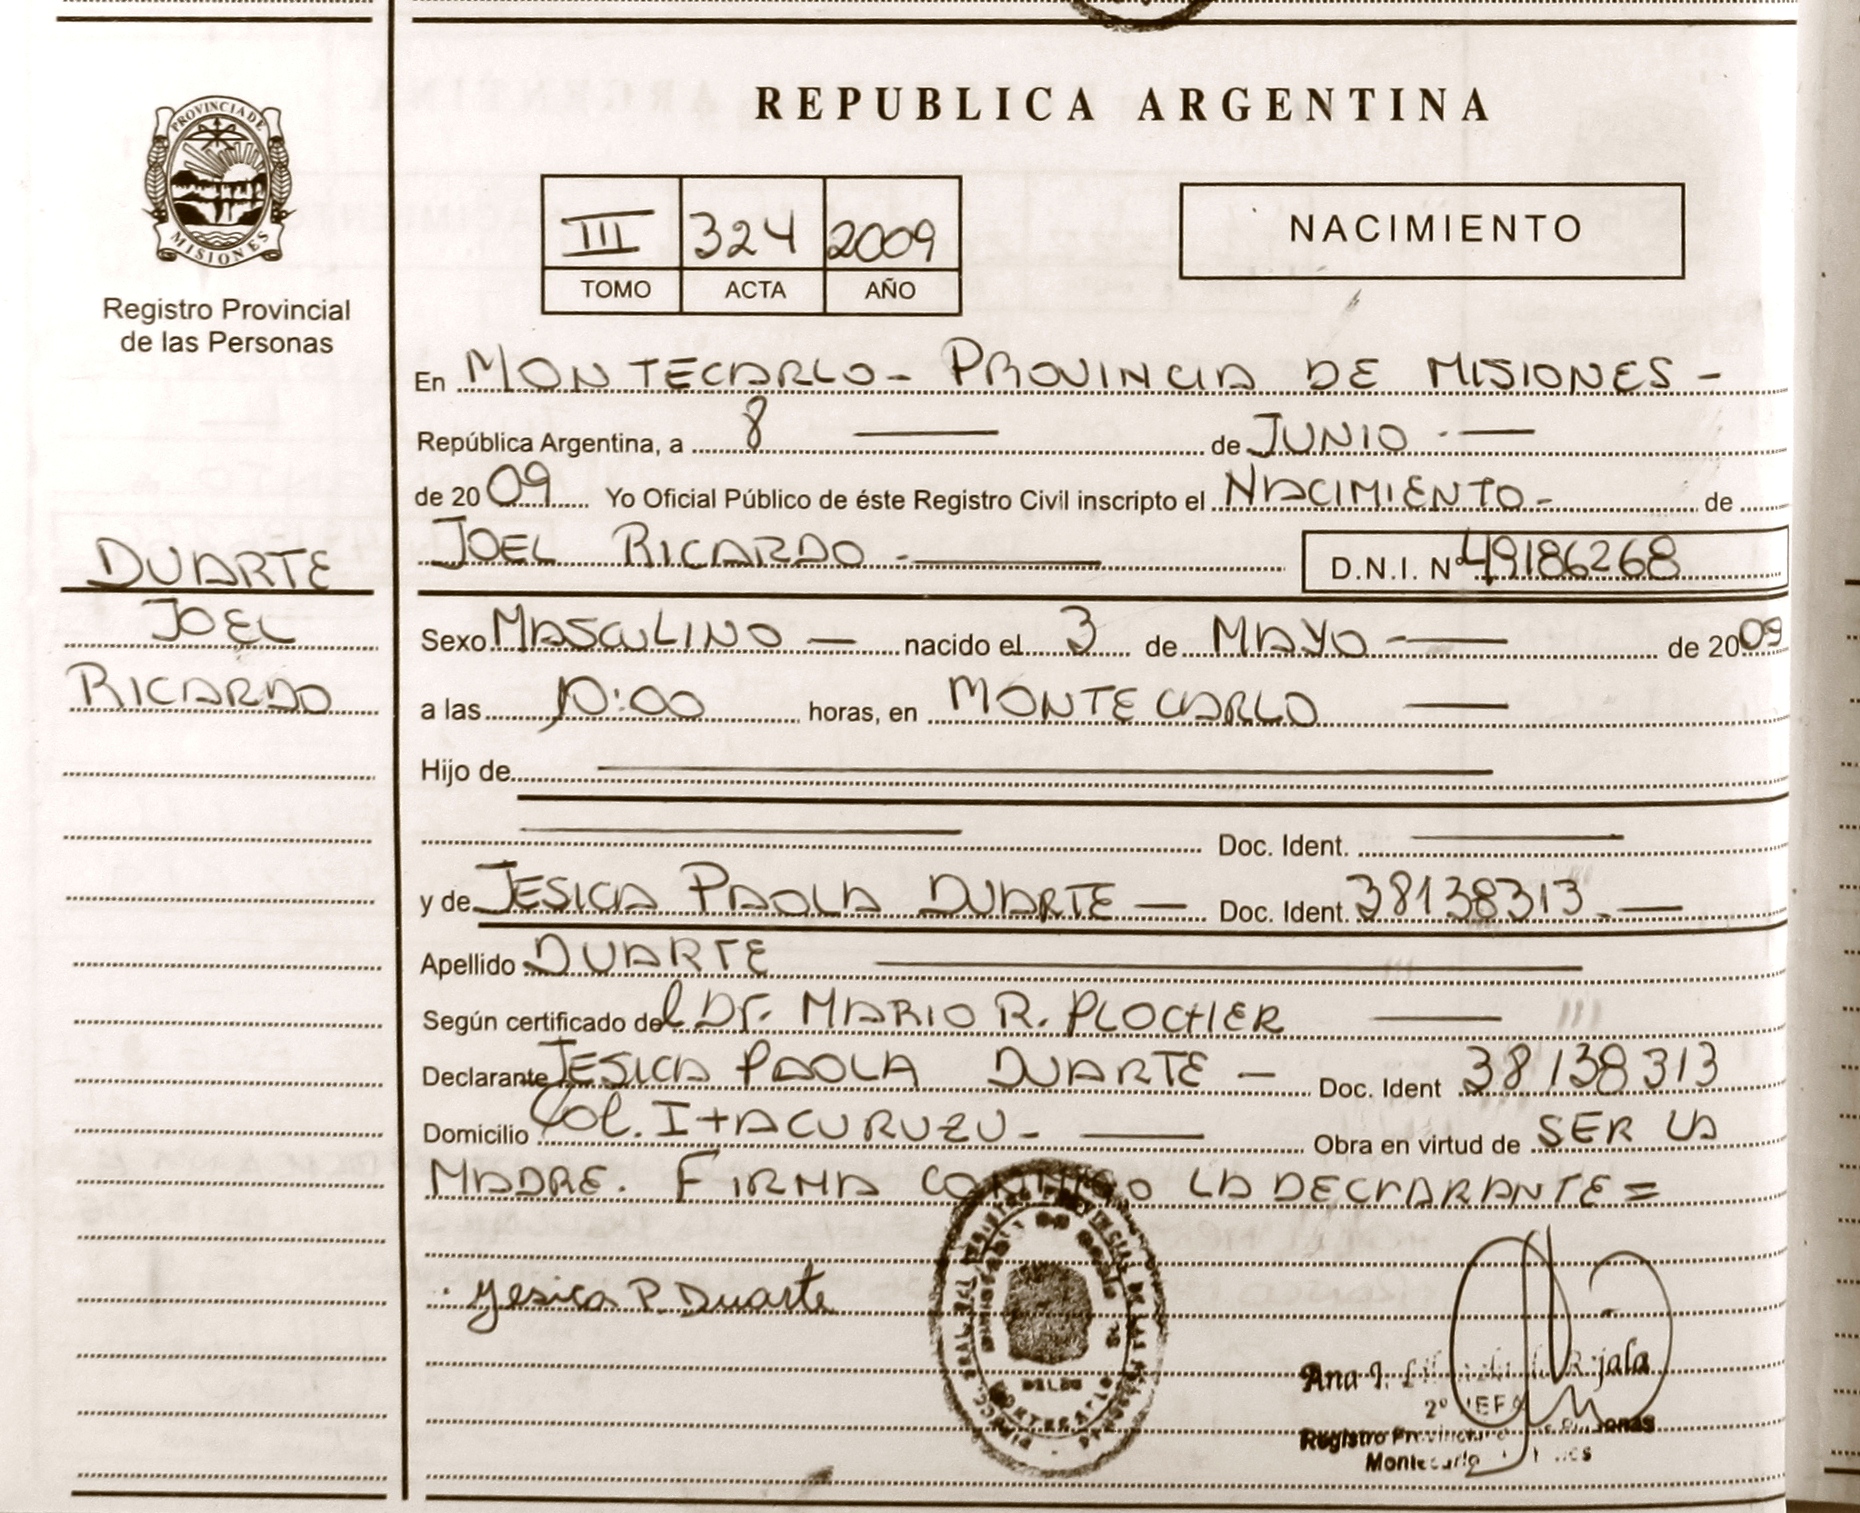 REPUBLICA ARGENTINA
PROVINCIA DE
MISIONES
Registro Provincial
de las Personas
III 324 2009
TOMO ACTA AÑO
NACIMIENTO
En MONTECARLO - PROVINCIA DE MISIONES -
República Argentina, a 8 de JUNIO
de 2009 Yo Oficial Público de éste Registro Civil inscripto el NACIMIENTO - de
JOEL RICARDO - D.N.I. Nº 49186268
DUARTE
JOEL
RICARDO
Sexo MASCULINO nacido el 3 de MAYO - de 2009
a las 10:00 horas, en MONTECARLO
Hijo de
Doc. Ident.
y de JESICA PAOLA DUARTE Doc. Ident. 38138313.
Apellido DUARTE
Según certificado del Dr. MARIO R. PLOCHER
Declarante JESICA PAOLA DUARTE - Doc. Ident 38138313
Domicilio Col. ITACURUZU - Obra en virtud de SER LA
MADRE. FIRMA CONMIGO LA DECLARANTE =
Yesica P. Duarte
Ana I.
2º JEFA
Registro Provincial de las Personas
Montecarlo